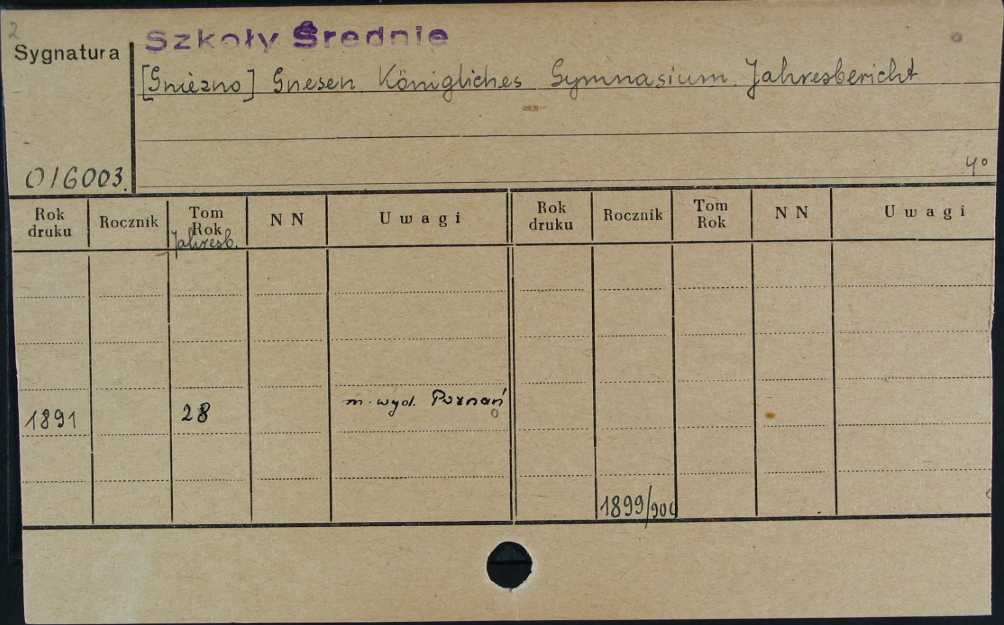 2
Szkoły Średnie
Sygnatura
[Gniezno] Gnesen Königliches Gymnasium. Jahresbericht
016003.
4°
Rok druku Rocznik Tom Rok Jahresb. N N Uwagi Rok druku Rocznik Tom Rok N N Uwagi
1891 28 m. wyd. Poznań
1899/900